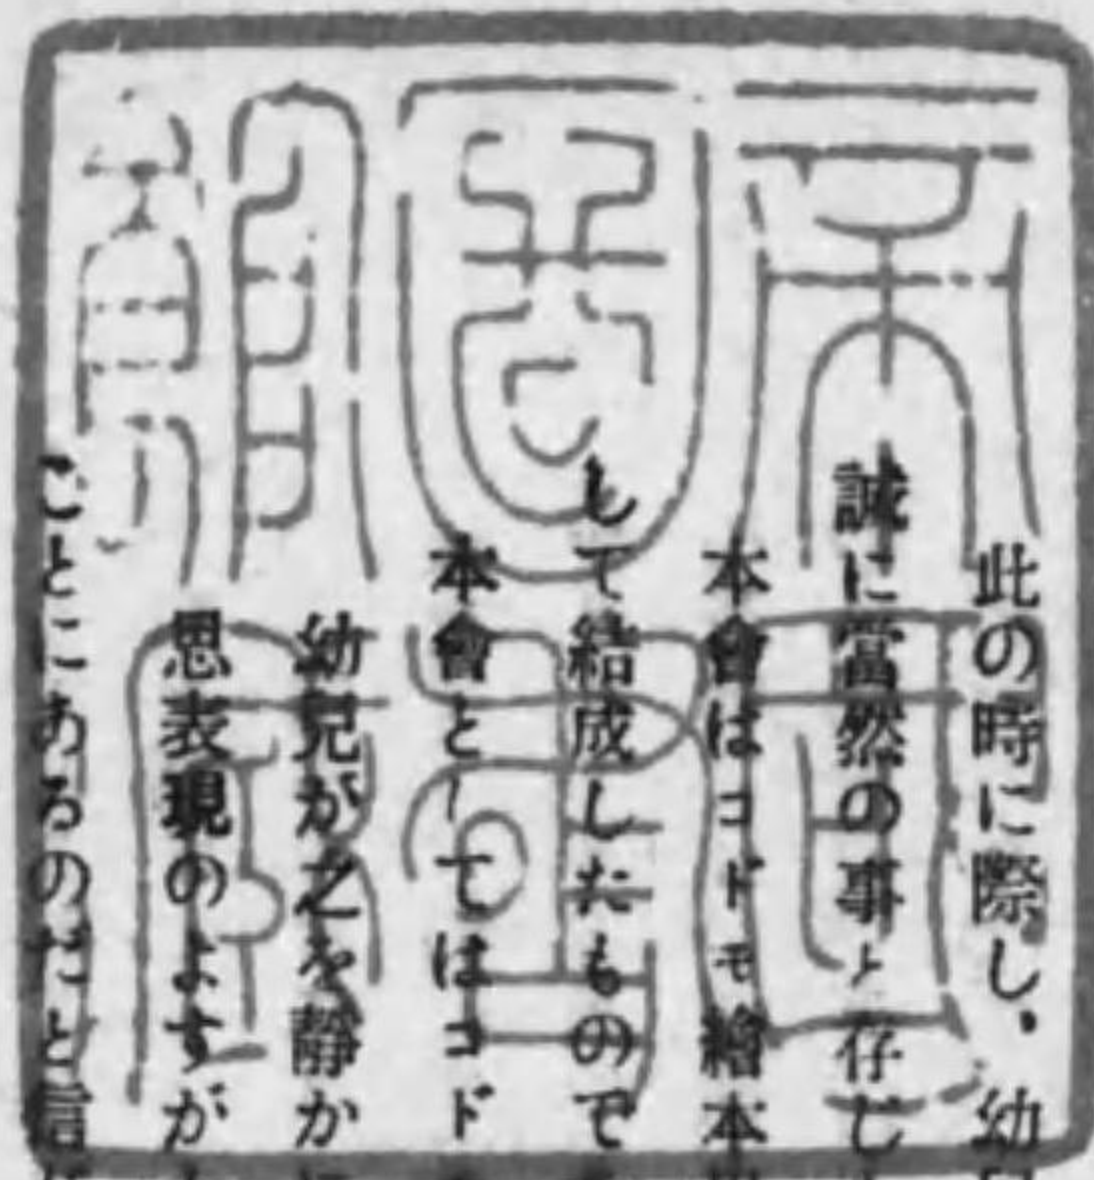 此の時に際し、幼
誠に當然の事と存じ
本會はコドモ繪本
して結成したもので
本會としてはコド
幼兒が之を靜か
思表現のよすが
ことにあるのだと信
帝國圖書館藏